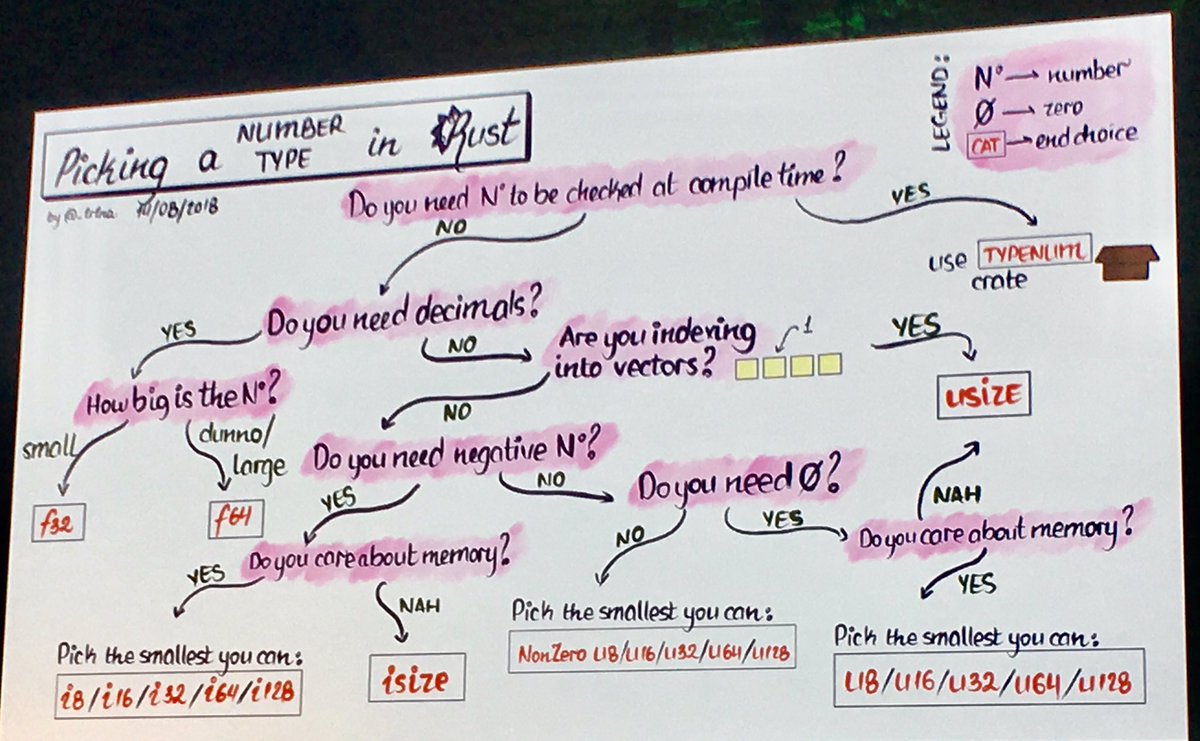 Picking a NUMBER TYPE in Rust
by @
/08/2018
LEGEND:
N° → number
Ø → zero
CAT → end choice
Do you need N° to be checked at compile time?
NO
YES
use TYPENUM
crate
Do you need decimals?
YES
NO
Are you indexing
into vectors?
1
YES
usize
NO
How big is the N°?
small
dunno/
large
f32
f64
Do you need negative N°?
YES
NO
Do you need Ø?
NO
YES
Do you care about memory?
NAH
YES
Do you care about memory?
YES
NAH
Pick the smallest you can:
i8/i16/i32/i64/i128
isize
Pick the smallest you can:
NonZero U8/U16/U32/U64/U128
Pick the smallest you can:
U8/U16/U32/U64/U128